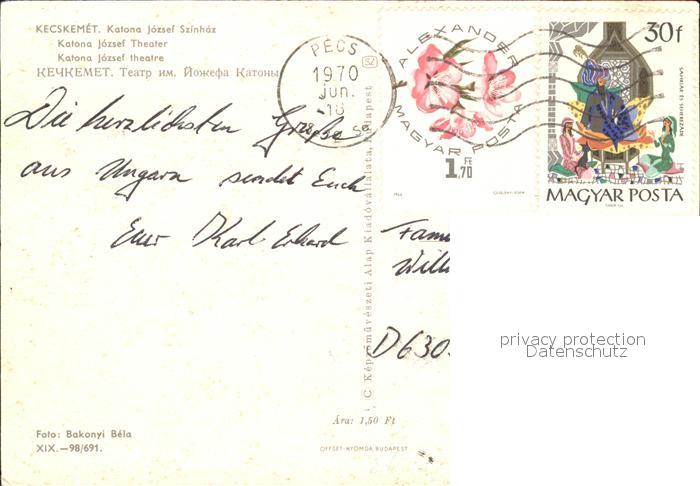 KECSKEMÉT. Katona József Színház
Katona József Theater
Katona József theatre
КЕЧКЕМЕТ. Театр им. Йожефа Катоны
PÉCS
1970
JUN.
-18
SZ
ALEXANDER
MAGYAR POSTA
1,70 FT
30f
SAHRIAR ÉS SEHEREZÁDÉ
MAGYAR POSTA
Die herzlichsten Grüße
aus Ungarn sendet Euch
Euer Karl Erhard
Fam
Will
D 630
privacy protection
Datenschutz
C Képzőművészeti Alap Kiadóvállalata, Budapest
Ára: 1,50 Ft
Foto: Bakonyi Béla
XIX.—98/691.
OFFSET-NYOMDA, BUDAPEST